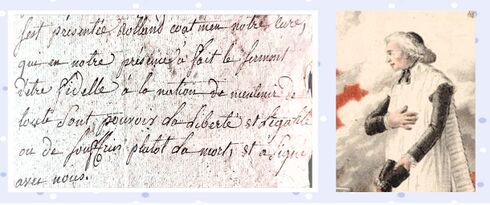 s'est présentée Rolland coatmen notre curé,
qui en notre présence a fait le serment
d'être fidelle à la nation de meutenir de
tout pouvoir La Liberté et L'égalité
ou de Souffrir plutot La mort, et a Signé
avec nous.